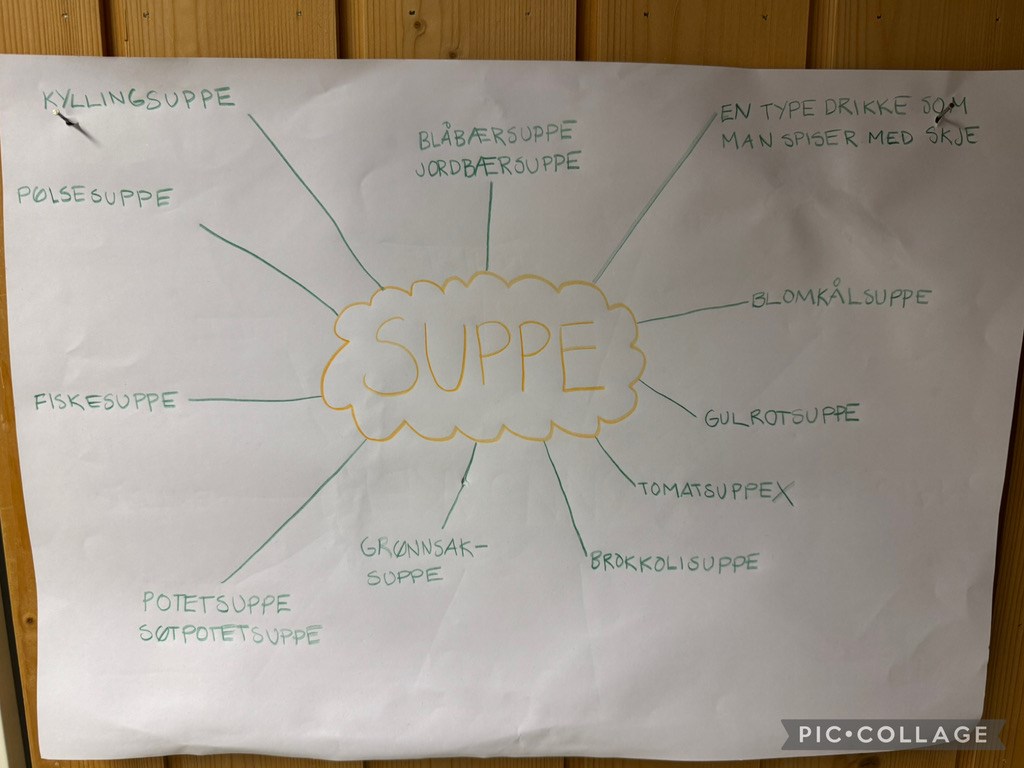 KYLLINGSUPPE
BLÅBÆRSUPPE
JORDBÆRSUPPE
EN TYPE DRIKKE SOM
MAN SPISER MED SKJE
PØLSESUPPE
BLOMKÅLSUPPE
SUPPE
FISKESUPPE
GULROTSUPPE
TOMATSUPPEX
GRØNNSAK-
SUPPE
BROKKOLISUPPE
POTETSUPPE
SØTPOTETSUPPE
PIC•COLLAGE